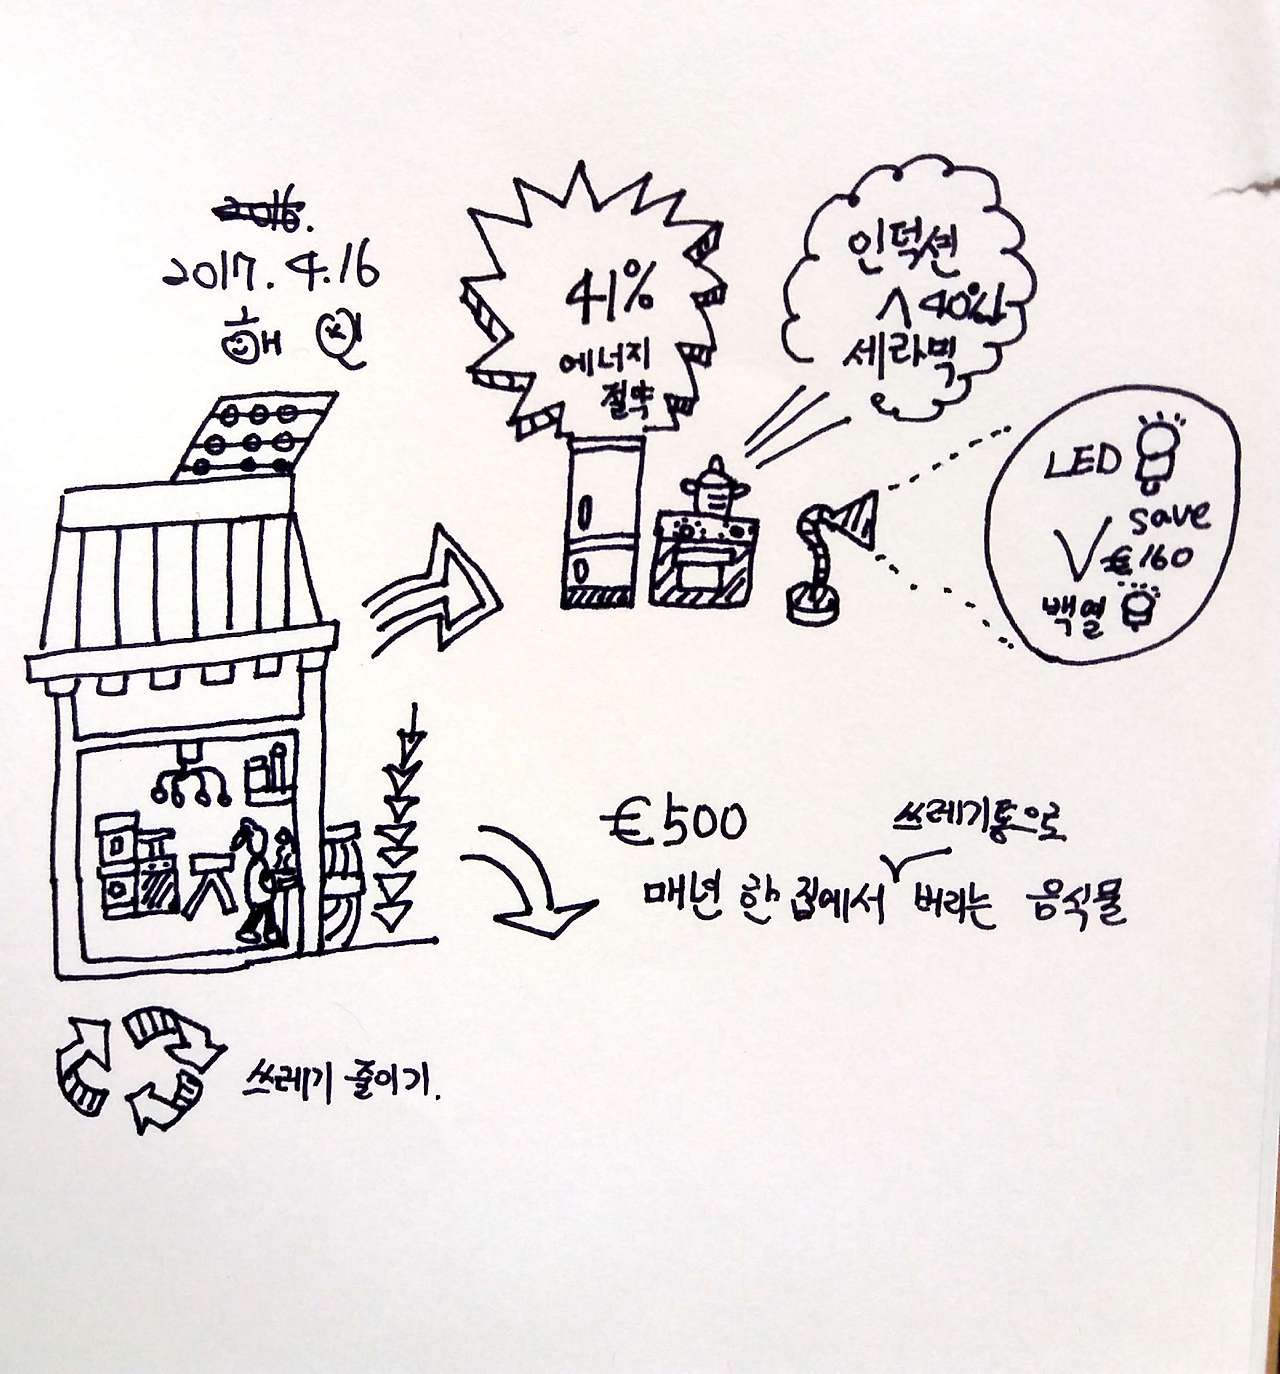 2016.
2017. 4.16
해
41%
에너지
절약
인덕션
40%
세라믹
LED
save
€160
백열
€500
쓰레기통으로
매년 한 집에서 버리는 음식물
쓰레기 줄이기.